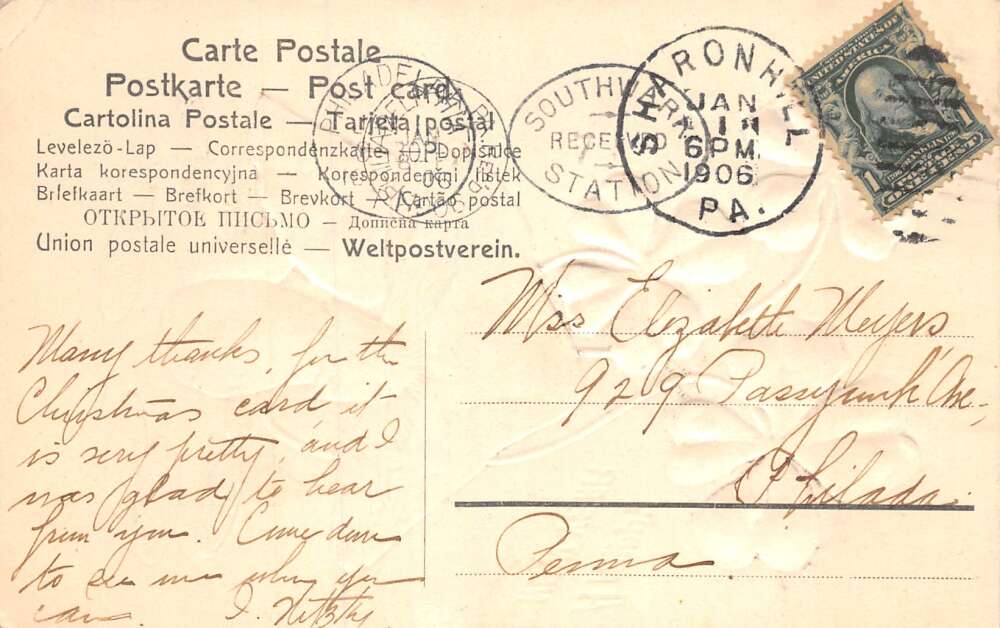 Carte Postale
Postkarte — Post card
Cartolina Postale — Tarjeta postal
Levelezö-Lap — Correspondenzkarte — Dopisnice
Karta korespondencyjna — Korespondenčni listek
Briefkaart — Brefkort — Brevkort — Cartão postal
ОТКРЫТОЕ ПИСЬМО — Дописна карта
Union postale universelle — Weltpostverein.
PHILADELPHIA, PA.
SOUTHWARK
RECEIVED
STATION
SHARON HILL
JAN
6 PM
1906
PA.
UNITED STATES OF AMERICA
1 1
ONE CENT
Miss Elizabeth Meyers
929 Passyunk Ave.,
Philada.
Penna
Many thanks, for the
Christmas card it
is very pretty, and I
was glad to hear
from you. Come down
to see me when you
can. I.